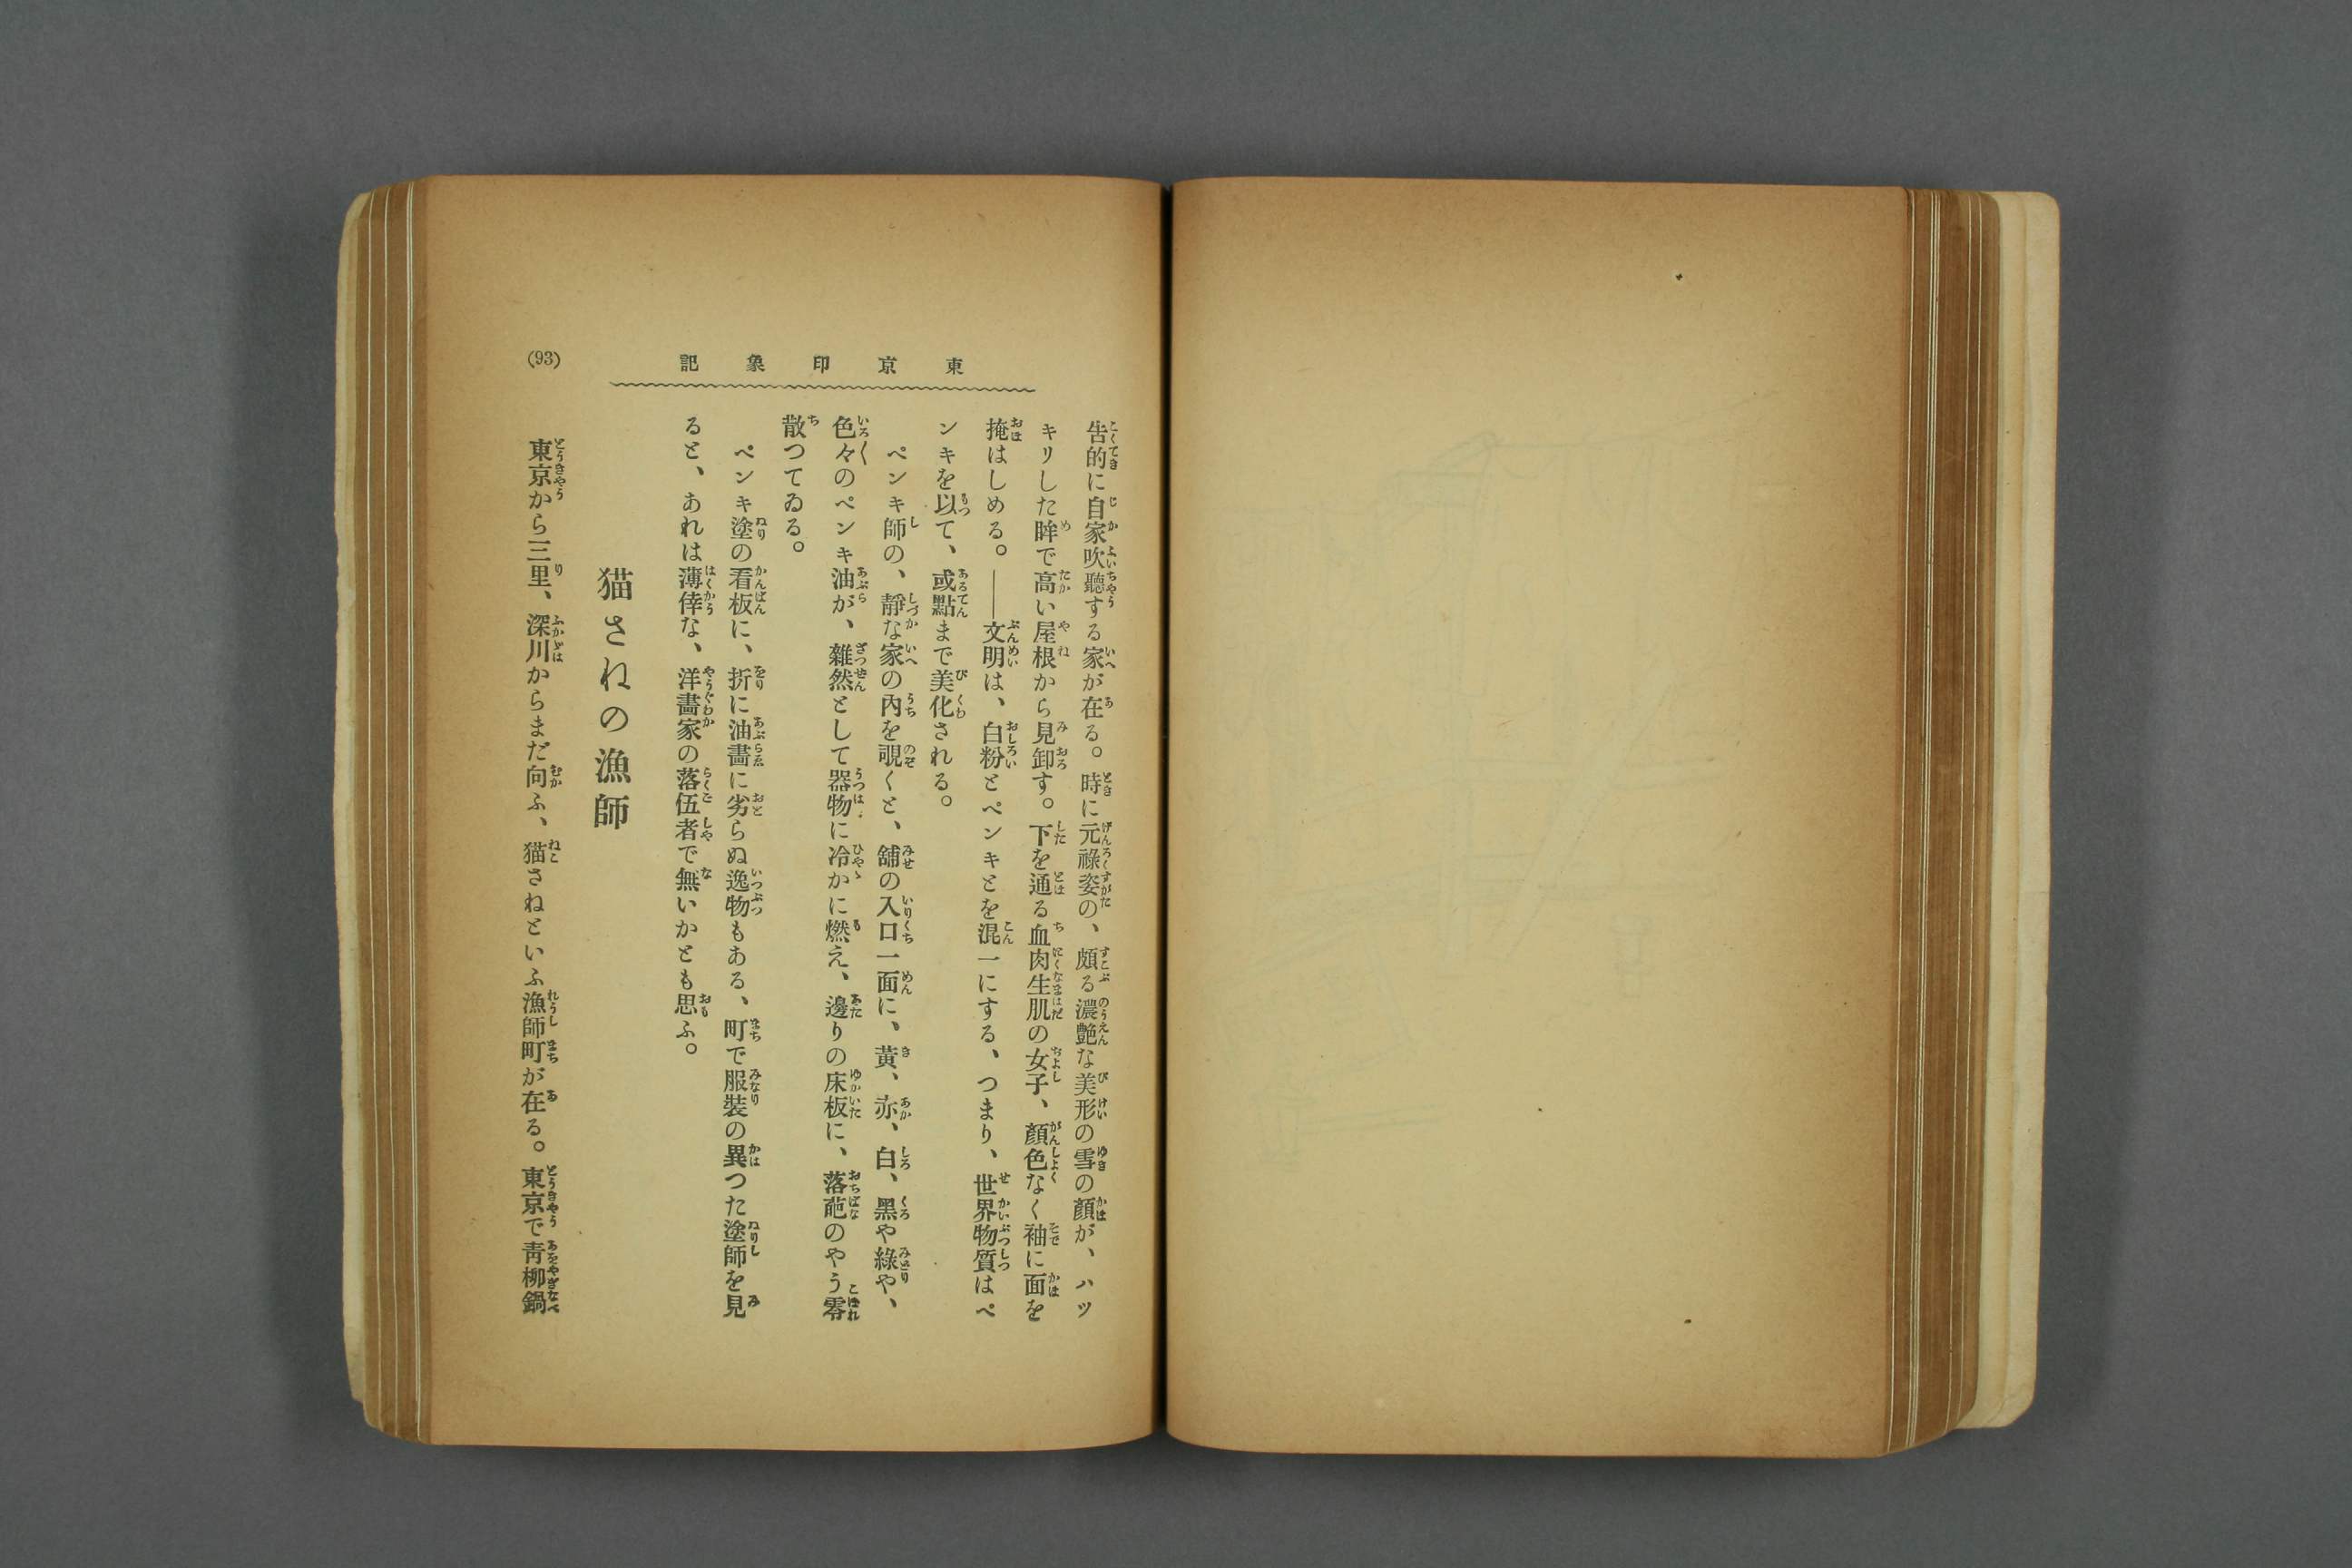 東京印象記
告的に自家吹聽する家が在る。時に元祿姿の、頗る濃艶な美形の雪の顏が、ハツ
キリした眸で高い屋根から見卸す。下を通る血肉生肌の女子、顏色なく袖に面を
掩はしめる。――文明は、白粉とペンキとを混一にする、つまり、世界物質はペ
ンキを以て、或點まで美化される。
ペンキ師の、靜な家の內を覗くと、舖の入口一面に、黃、赤、白、黑や綠や、
色々のペンキ油が、雜然として器物に冷かに燃え、邊りの床板に、落葩のやう零
散つてゐる。
ペンキ塗の看板に、折に油畫に劣らぬ逸物もある、町で服裝の異つた塗師を見
ると、あれは薄倖な、洋畫家の落伍者で無いかとも思ふ。
猫さねの漁師
東京から三里、深川からまだ向ふ、猫さねといふ漁師町が在る。東京で靑柳鍋
(93)